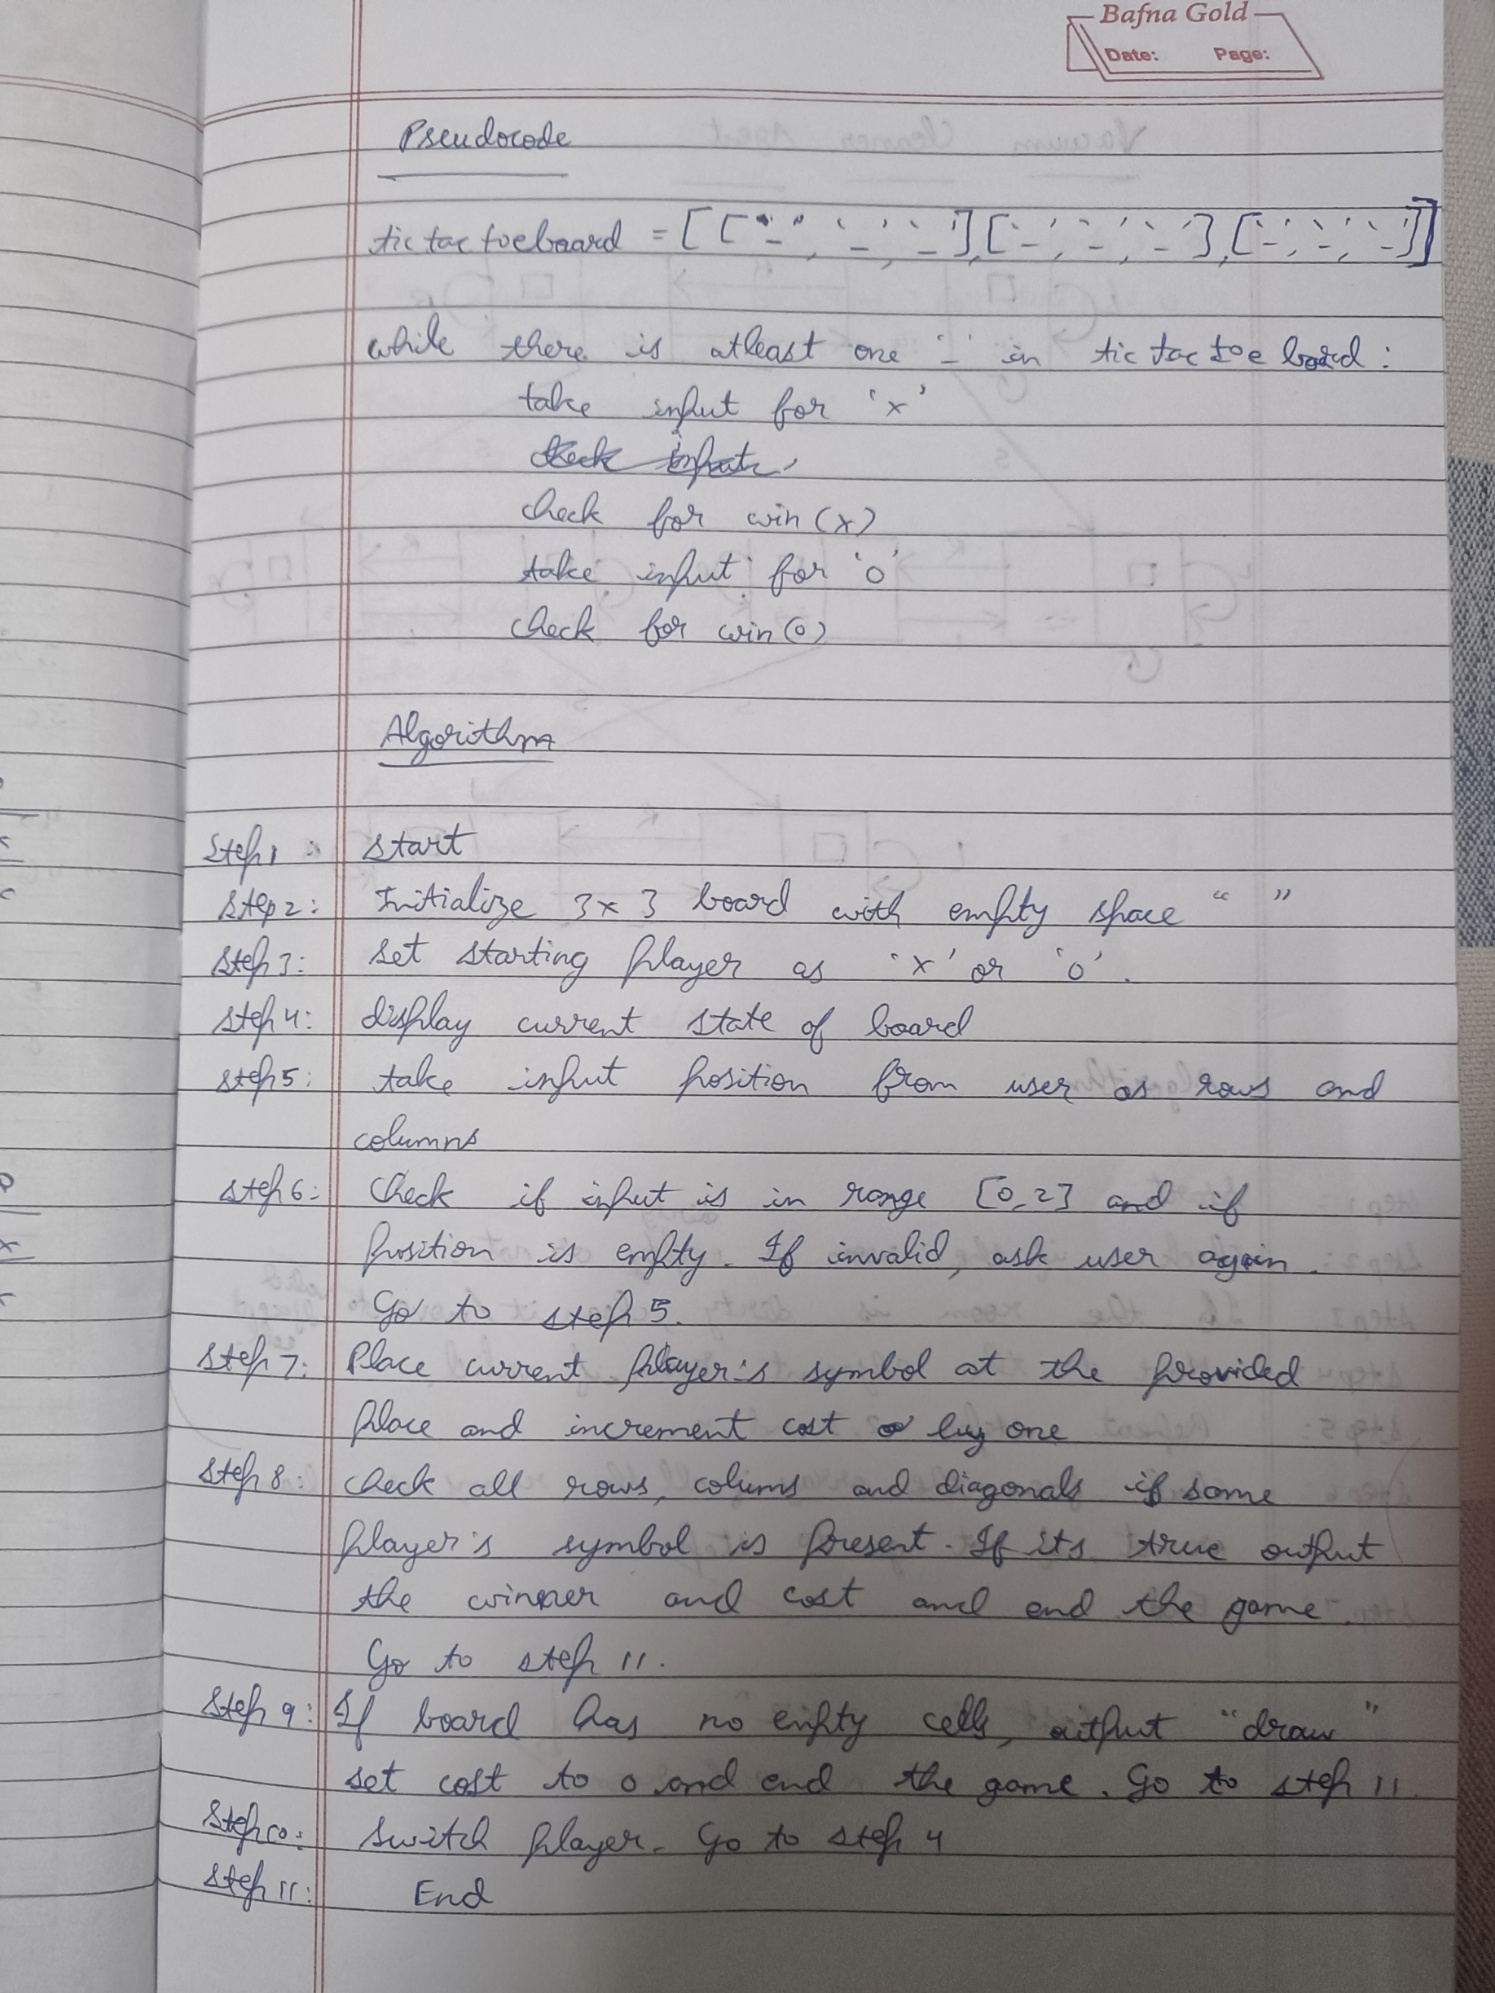 Bafna Gold
Date: Page:
Pseudocode
tictactoeboard = [['-', '-', '-'],['-', '-', '-'],['-', '-', '-']]
while there is atleast one '-' in tictactoe board:
take input for 'x'
check for win (x)
take input for 'o'
check for win (o)
Algorithm
Step 1: start
Step 2: Initialize 3x3 board with empty space " "
Step 3: set starting player as 'x' or 'o'.
Step 4: display current state of board
Step 5: take input position from user as rows and
columns
Step 6: Check if input is in range [0,2] and if
position is empty. If invalid, ask user again.
Go to step 5.
Step 7: Place current player's symbol at the provided
place and increment cost by one
Step 8: check all rows, colums and diagonals if same
player's symbol is present. If its true output
the winner and cost and end the game.
Go to step 11.
Step 9: If board has no empty cells, output "draw"
set cost to 0 and end the game. Go to step 11.
Step 10: Switch player. Go to step 4
Step 11: End